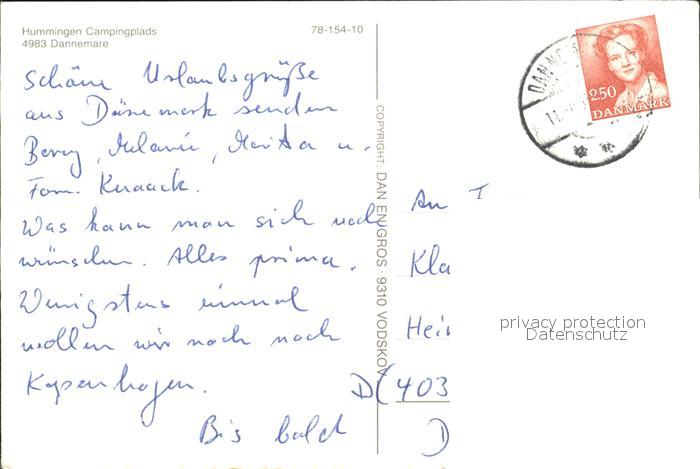 Hummingen Campingplads
4983 Dannemare
78-154-10
Schöne Urlaubsgrüße
aus Dänemark senden
Melanie, Marita u.
Fam. Knaack.
Was kann man sich noch
wünschen. Alles prima.
Wenigstens einmal
wollen wir noch nach
Kopenhagen.
Bis bald
COPYRIGHT: DAN ENGROS · 9310 VODSKOV
2.50
DANMARK
DANNE
An T
Kla
Hei
D(403
D
privacy protection
Datenschutz